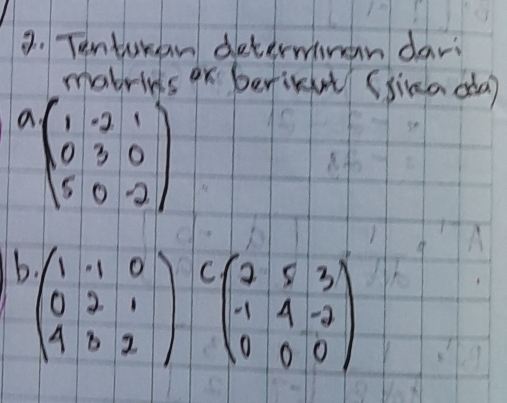 2. Tentukan determinan dari
matriks berikut (jika ada)
a. (1 -2 1
0 3 0
5 0 -2)
b. (1 -1 0
0 2 1
4 3 2)
c. (2 5 3
-1 4 -2
0 0 0)